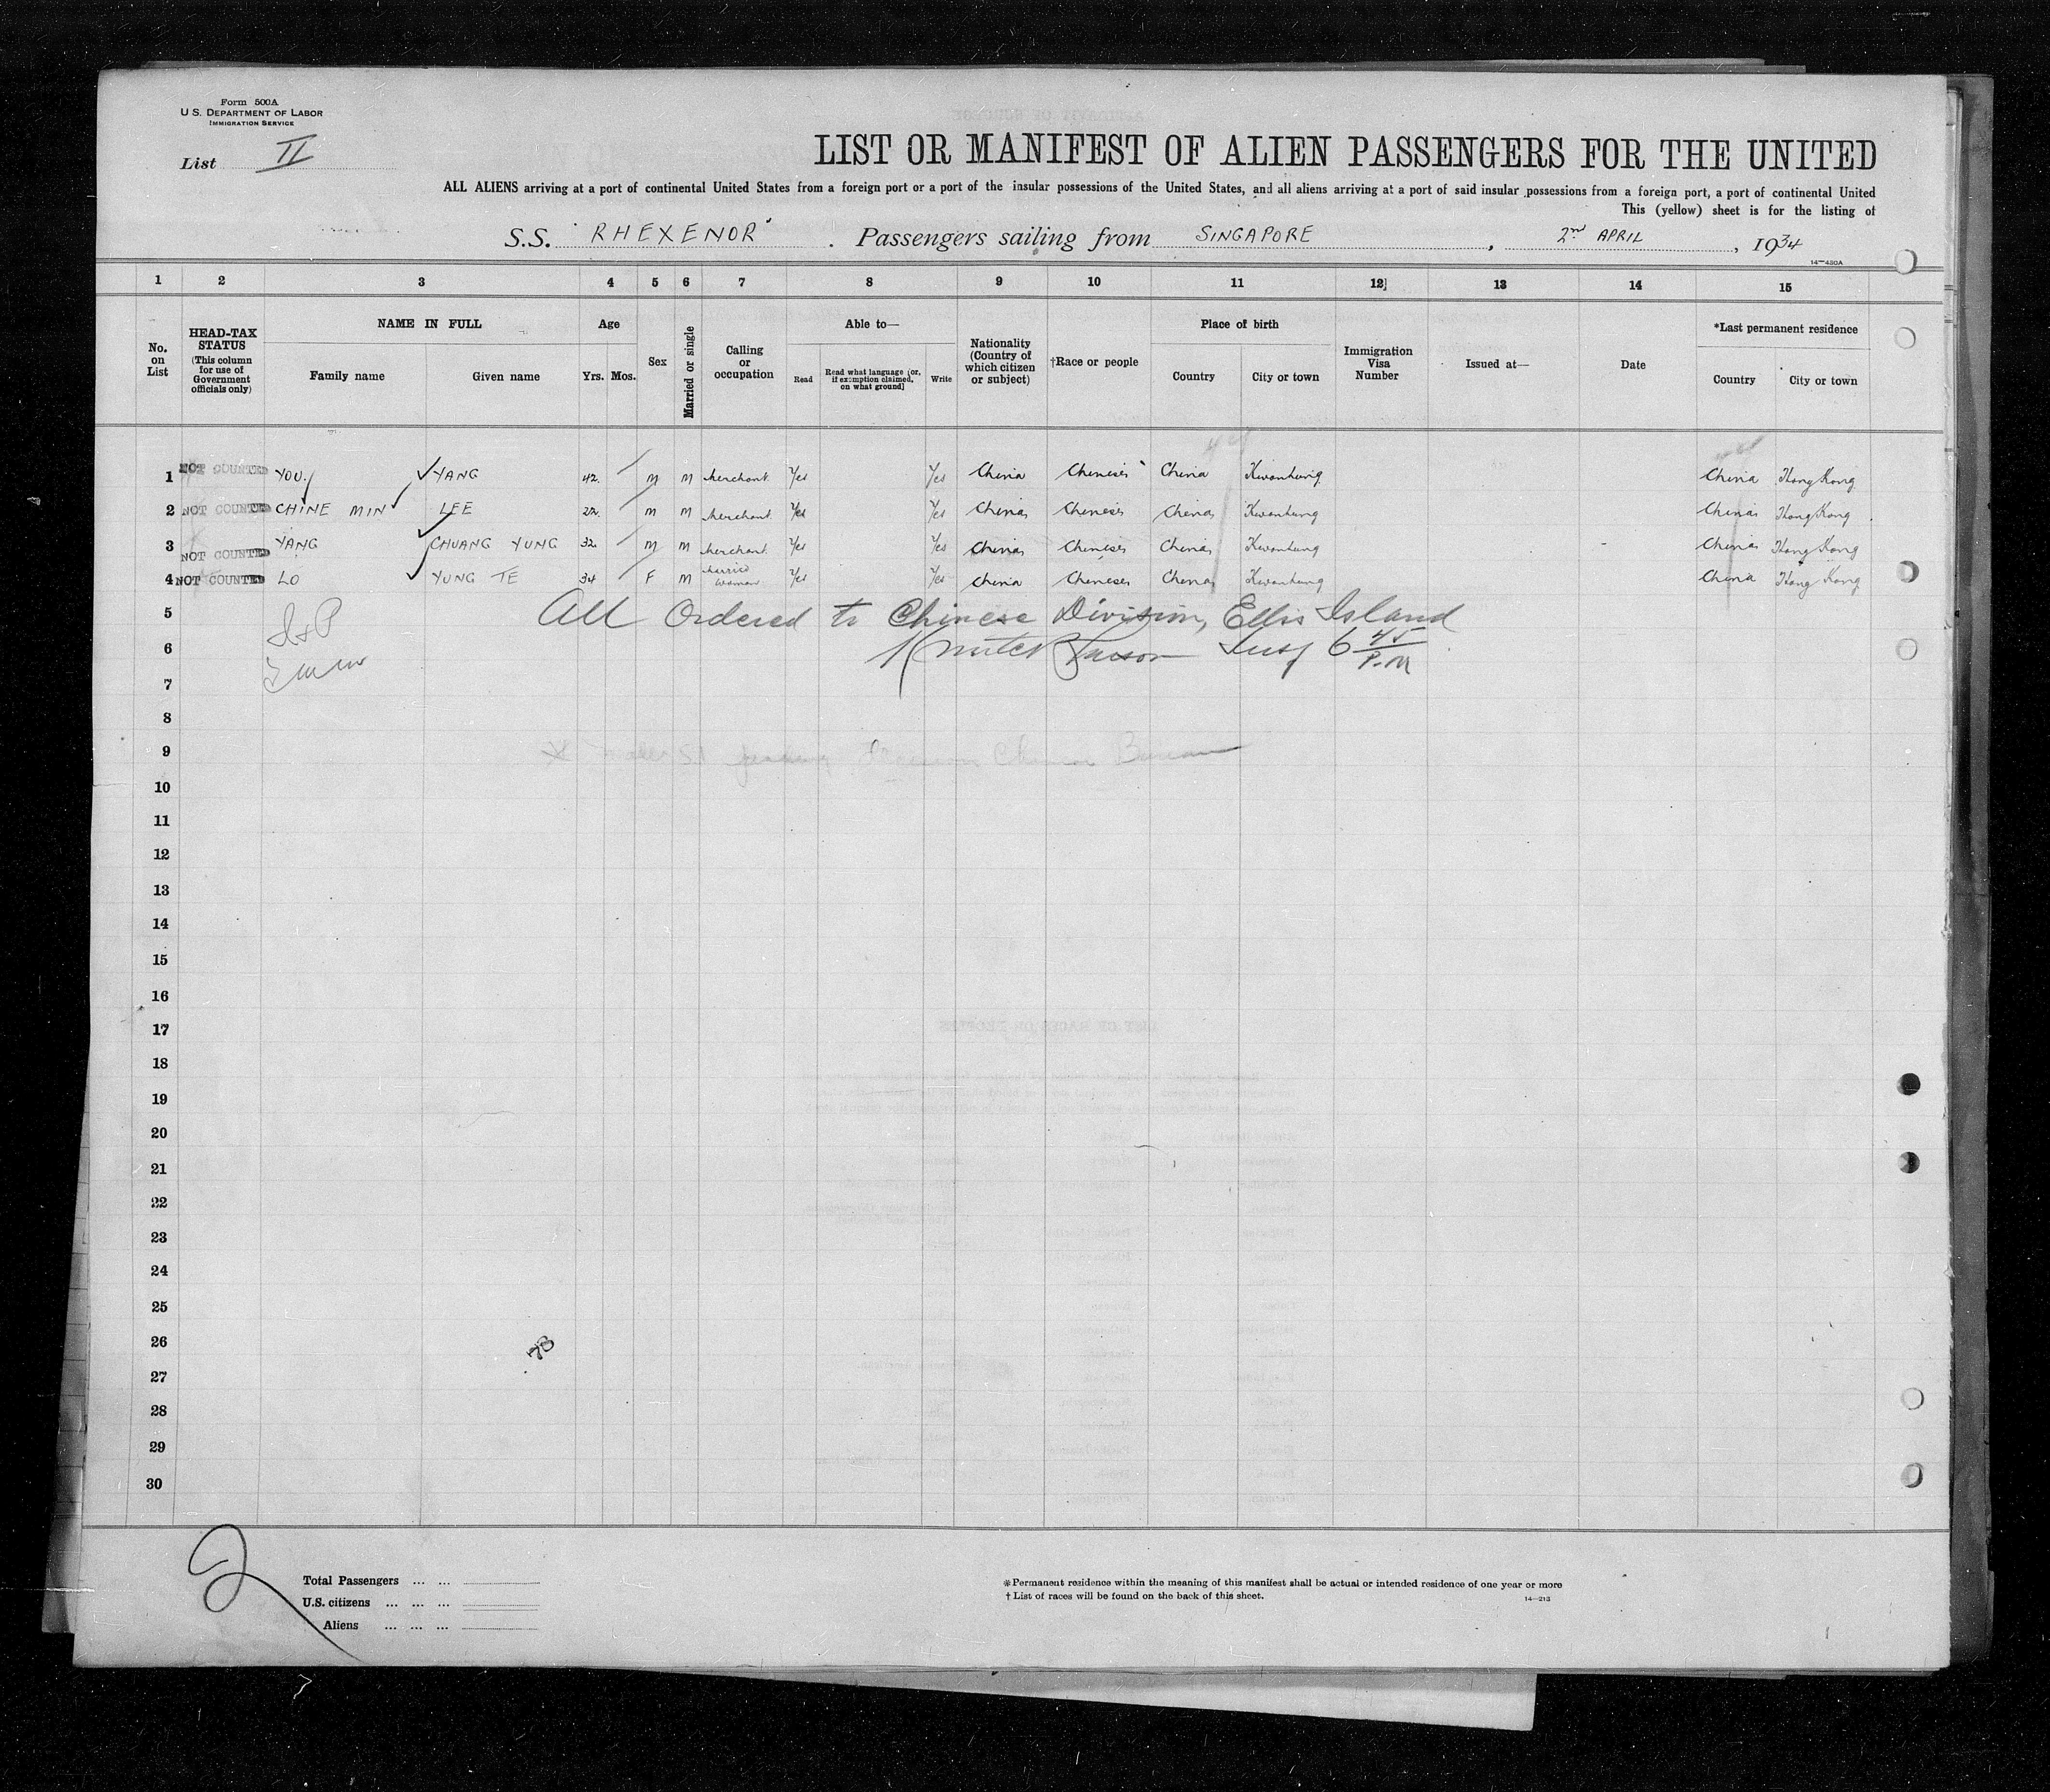 Form 500A
U. S. DEPARTMENT OF LABOR
IMMIGRATION SERVICE
List II
LIST OR MANIFEST OF ALIEN PASSENGERS FOR THE UNITED
ALL ALIENS arriving at a port of continental United States from a foreign port or a port of the insular possessions of the United States, and all aliens arriving at a port of said insular possessions from a foreign port, a port of continental United
This (yellow) sheet is for the listing of
S.S. "RHEXENOR" Passengers sailing from SINGAPORE, 2nd APRIL, 1934
14-430A
1 2 3 4 5 6 7 8 9 10 11 12 13 14 15
No. on List
HEAD-TAX STATUS (This column for use of Government officials only)
NAME IN FULL
Family name Given name
Age
Yrs. Mos.
Sex
Married or single
Calling or occupation
Able to—
Read Read what language [or, if exemption claimed, on what ground] Write
Nationality (Country of which citizen or subject)
†Race or people
Place of birth
Country City or town
Immigration Visa Number
Issued at—
Date
*Last permanent residence
Country City or town
1 NOT COUNTED YOU YANG 42 M M Merchant Yes Yes China Chineses China Kwantung China Hong Kong
2 NOT COUNTED CHINE MIN LEE 22 M M Merchant Yes Yes China Chineses China Kwantung China Hong Kong
3 NOT COUNTED YANG CHUANG YUNG 32 M M Merchant Yes Yes China Chineses China Kwantung China Hong Kong
4 NOT COUNTED LO YUNG TE 34 F M Married Woman Yes Yes China Chineses China Kwantung China Hong Kong
5 All Ordered to Chinese Division, Ellis Island
6 Insp 6 45 P.M
7
8
9 Chinese Bureau
10
11
12
13
14
15
16
17
18
19
20
21
22
23
24
25
26
27
28
29
30
2
Total Passengers ... ...
U.S. citizens ... ... ...
Aliens ... ... ...
*Permanent residence within the meaning of this manifest shall be actual or intended residence of one year or more
†List of races will be found on the back of this sheet.
14-213